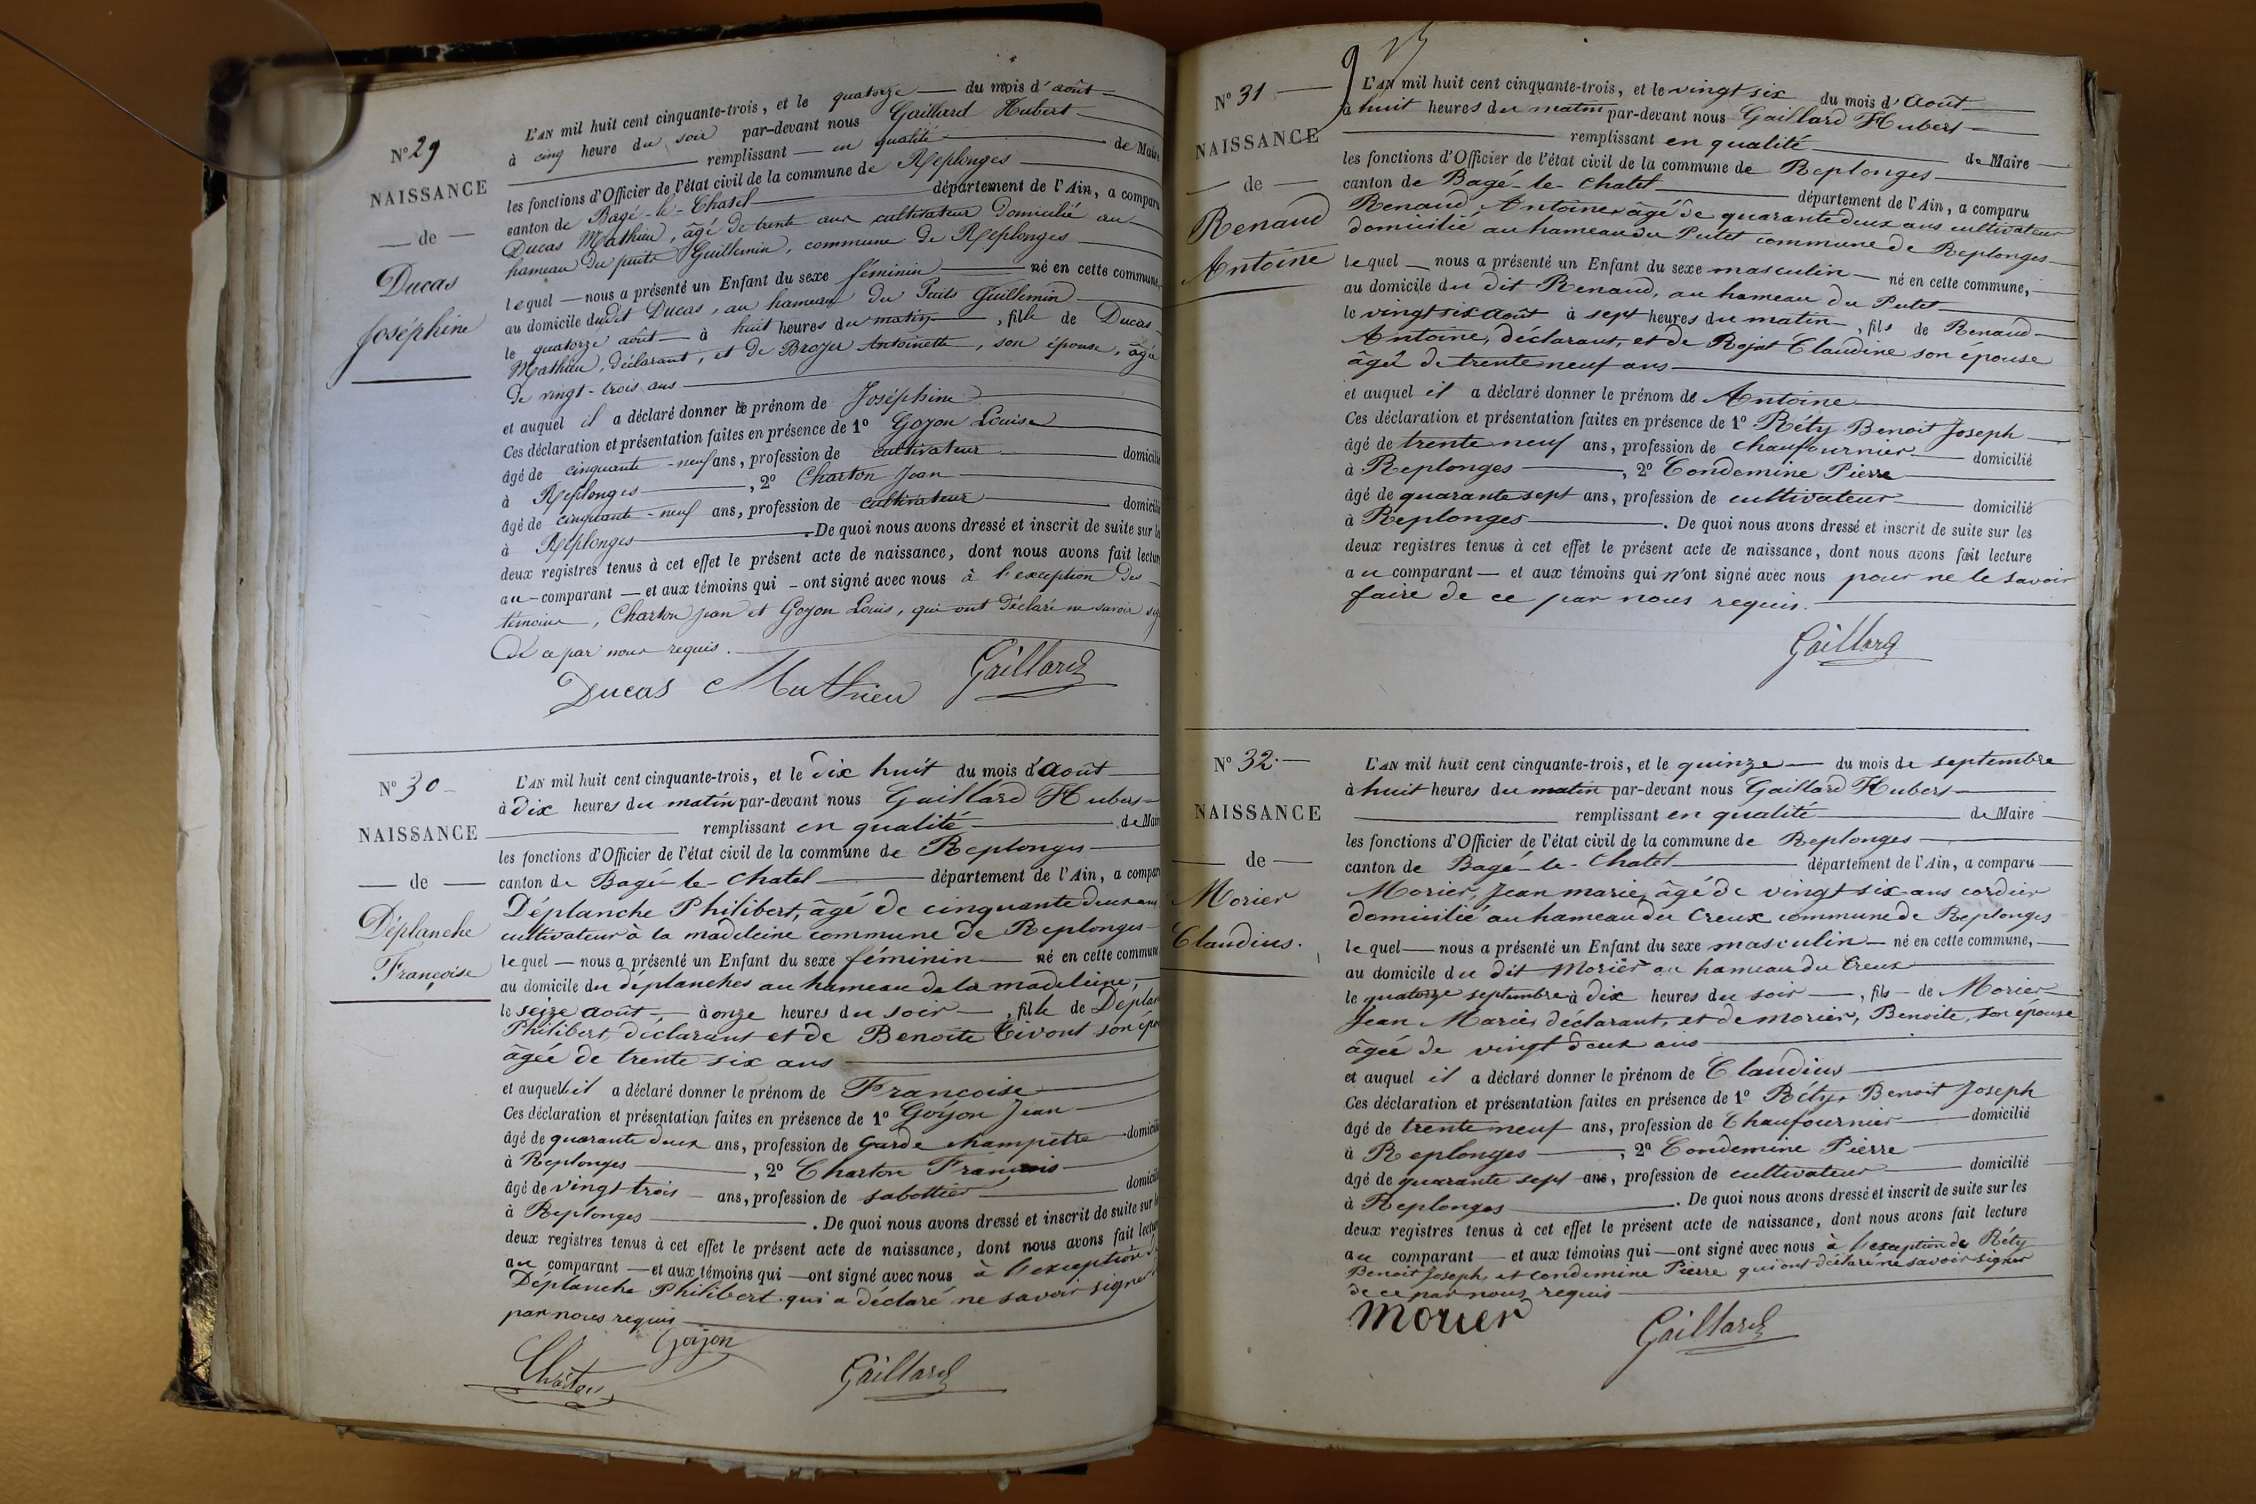 N° 29
NAISSANCE
de
Ducas
Joséphine
L'AN mil huit cent cinquante-trois, et le quatorze du mois d'août
à cinq heure du soir par-devant nous Gaillard Hubert
remplissant en qualité de Maire
les fonctions d'Officier de l'état civil de la commune de Replonges
canton de Bagé-le-Chatel département de l'Ain, a comparu
Ducas Mathieu, âgé de trente ans cultivateur domicilié au
hameau du puits Guillemin, commune de Replonges
lequel nous a présenté un Enfant du sexe féminin né en cette commune,
au domicile dudit Ducas, au hameau du Puits Guillemin
le quatorze août à huit heures du matin, fille de Ducas
Mathieu, déclarant, et de Broyer Antoinette, son épouse, âgée
de vingt-trois ans
et auquel il a déclaré donner le prénom de Joséphine
Ces déclaration et présentation faites en présence de 1° Goyon Louise
âgé de cinquante-neuf ans, profession de cultivateur domicilié
à Replonges, 2° Charton Jean
âgé de cinquante-neuf ans, profession de cultivateur domicilié
à Replonges. De quoi nous avons dressé et inscrit de suite sur les
deux registres tenus à cet effet le présent acte de naissance, dont nous avons fait lecture
au comparant et aux témoins qui ont signé avec nous à l'exception des
témoins, Charton Jean et Goyon Louis, qui ont déclaré ne savoir
de ce par nous requis.
Ducas Mathieu Gaillard
N° 30
NAISSANCE
de
Déplanche
Françoise
L'AN mil huit cent cinquante-trois, et le dix huit du mois d'août
à dix heures du matin par-devant nous Gaillard Hubert
remplissant en qualité de Maire
les fonctions d'Officier de l'état civil de la commune de Replonges
canton de Bagé-le-Chatel département de l'Ain, a comparu
Déplanche Philibert, âgé de cinquante deux ans
cultivateur à la madeleine commune de Replonges
lequel nous a présenté un Enfant du sexe féminin né en cette commune
au domicile du déplanches au hameau de la madeleine,
le seize août à onze heures du soir, fille de Déplan
Philibert, déclarant et de Benoite Tivont son épo
âgée de trente-six ans
et auquel il a déclaré donner le prénom de Françoise
Ces déclaration et présentation faites en présence de 1° Goyon Jean
âgé de quarante deux ans, profession de Garde champêtre domicilié
à Replonges, 2° Charton François
âgé de vingt trois ans, profession de sabottier domicilié
à Replonges. De quoi nous avons dressé et inscrit de suite sur les
deux registres tenus à cet effet le présent acte de naissance, dont nous avons fait lecture
au comparant et aux témoins qui ont signé avec nous à l'exception
Déplanche Philibert qui a déclaré ne savoir signer
par nous requis
Goyon
Charton Gaillard
9
N° 31
NAISSANCE
de
Renaud
Antoine
L'AN mil huit cent cinquante-trois, et le vingt six du mois d'Août
à huit heures du matin par-devant nous Gaillard Hubert
remplissant en qualité de Maire
les fonctions d'Officier de l'état civil de la commune de Replonges
canton de Bagé-le-Chatel département de l'Ain, a comparu
Renaud Antoine, âgé de quarante deux ans cultivateur
domicilié au hameau du Putet commune de Replonges
lequel nous a présenté un Enfant du sexe masculin né en cette commune,
au domicile du dit Renaud, au hameau du Putet
le vingt six août à sept heures du matin, fils de Renaud
Antoine, déclarant, et de Rojat Claudine son épouse
âgée de trente neuf ans
et auquel il a déclaré donner le prénom de Antoine
Ces déclaration et présentation faites en présence de 1° Réty Benoit Joseph
âgé de trente neuf ans, profession de chaufournier domicilié
à Replonges, 2° Condemine Pierre
âgé de quarante sept ans, profession de cultivateur domicilié
à Replonges. De quoi nous avons dressé et inscrit de suite sur les
deux registres tenus à cet effet le présent acte de naissance, dont nous avons fait lecture
au comparant et aux témoins qui n'ont signé avec nous pour ne le savoir
faire de ce par nous requis.
Gaillard
N° 32
NAISSANCE
de
Morier
Claudius.
L'AN mil huit cent cinquante-trois, et le quinze du mois de septembre
à huit heures du matin par-devant nous Gaillard Hubert
remplissant en qualité de Maire
les fonctions d'Officier de l'état civil de la commune de Replonges
canton de Bagé-le-Chatel département de l'Ain, a comparu
Morier, Jean marie, âgé de vingt six ans cordier
domicilié au hameau du Creux commune de Replonges
lequel nous a présenté un Enfant du sexe masculin né en cette commune,
au domicile du dit Morier au hameau du Creux
le quatorze septembre à dix heures du soir, fils de Morier
Jean Marie, déclarant, et de morier, Benoite, son épouse
âgée de vingt deux ans
et auquel il a déclaré donner le prénom de Claudius
Ces déclaration et présentation faites en présence de 1° Réty, Benoit Joseph
âgé de trente neuf ans, profession de Chaufournier domicilié
à Replonges, 2° Condemine Pierre
âgé de quarante sept ans, profession de cultivateur domicilié
à Replonges. De quoi nous avons dressé et inscrit de suite sur les
deux registres tenus à cet effet le présent acte de naissance, dont nous avons fait lecture
au comparant et aux témoins qui ont signé avec nous à l'exception de Réty
Benoit Joseph, et Condemine Pierre qui ont déclaré ne savoir signer
de ce par nous requis
Morier Gaillard